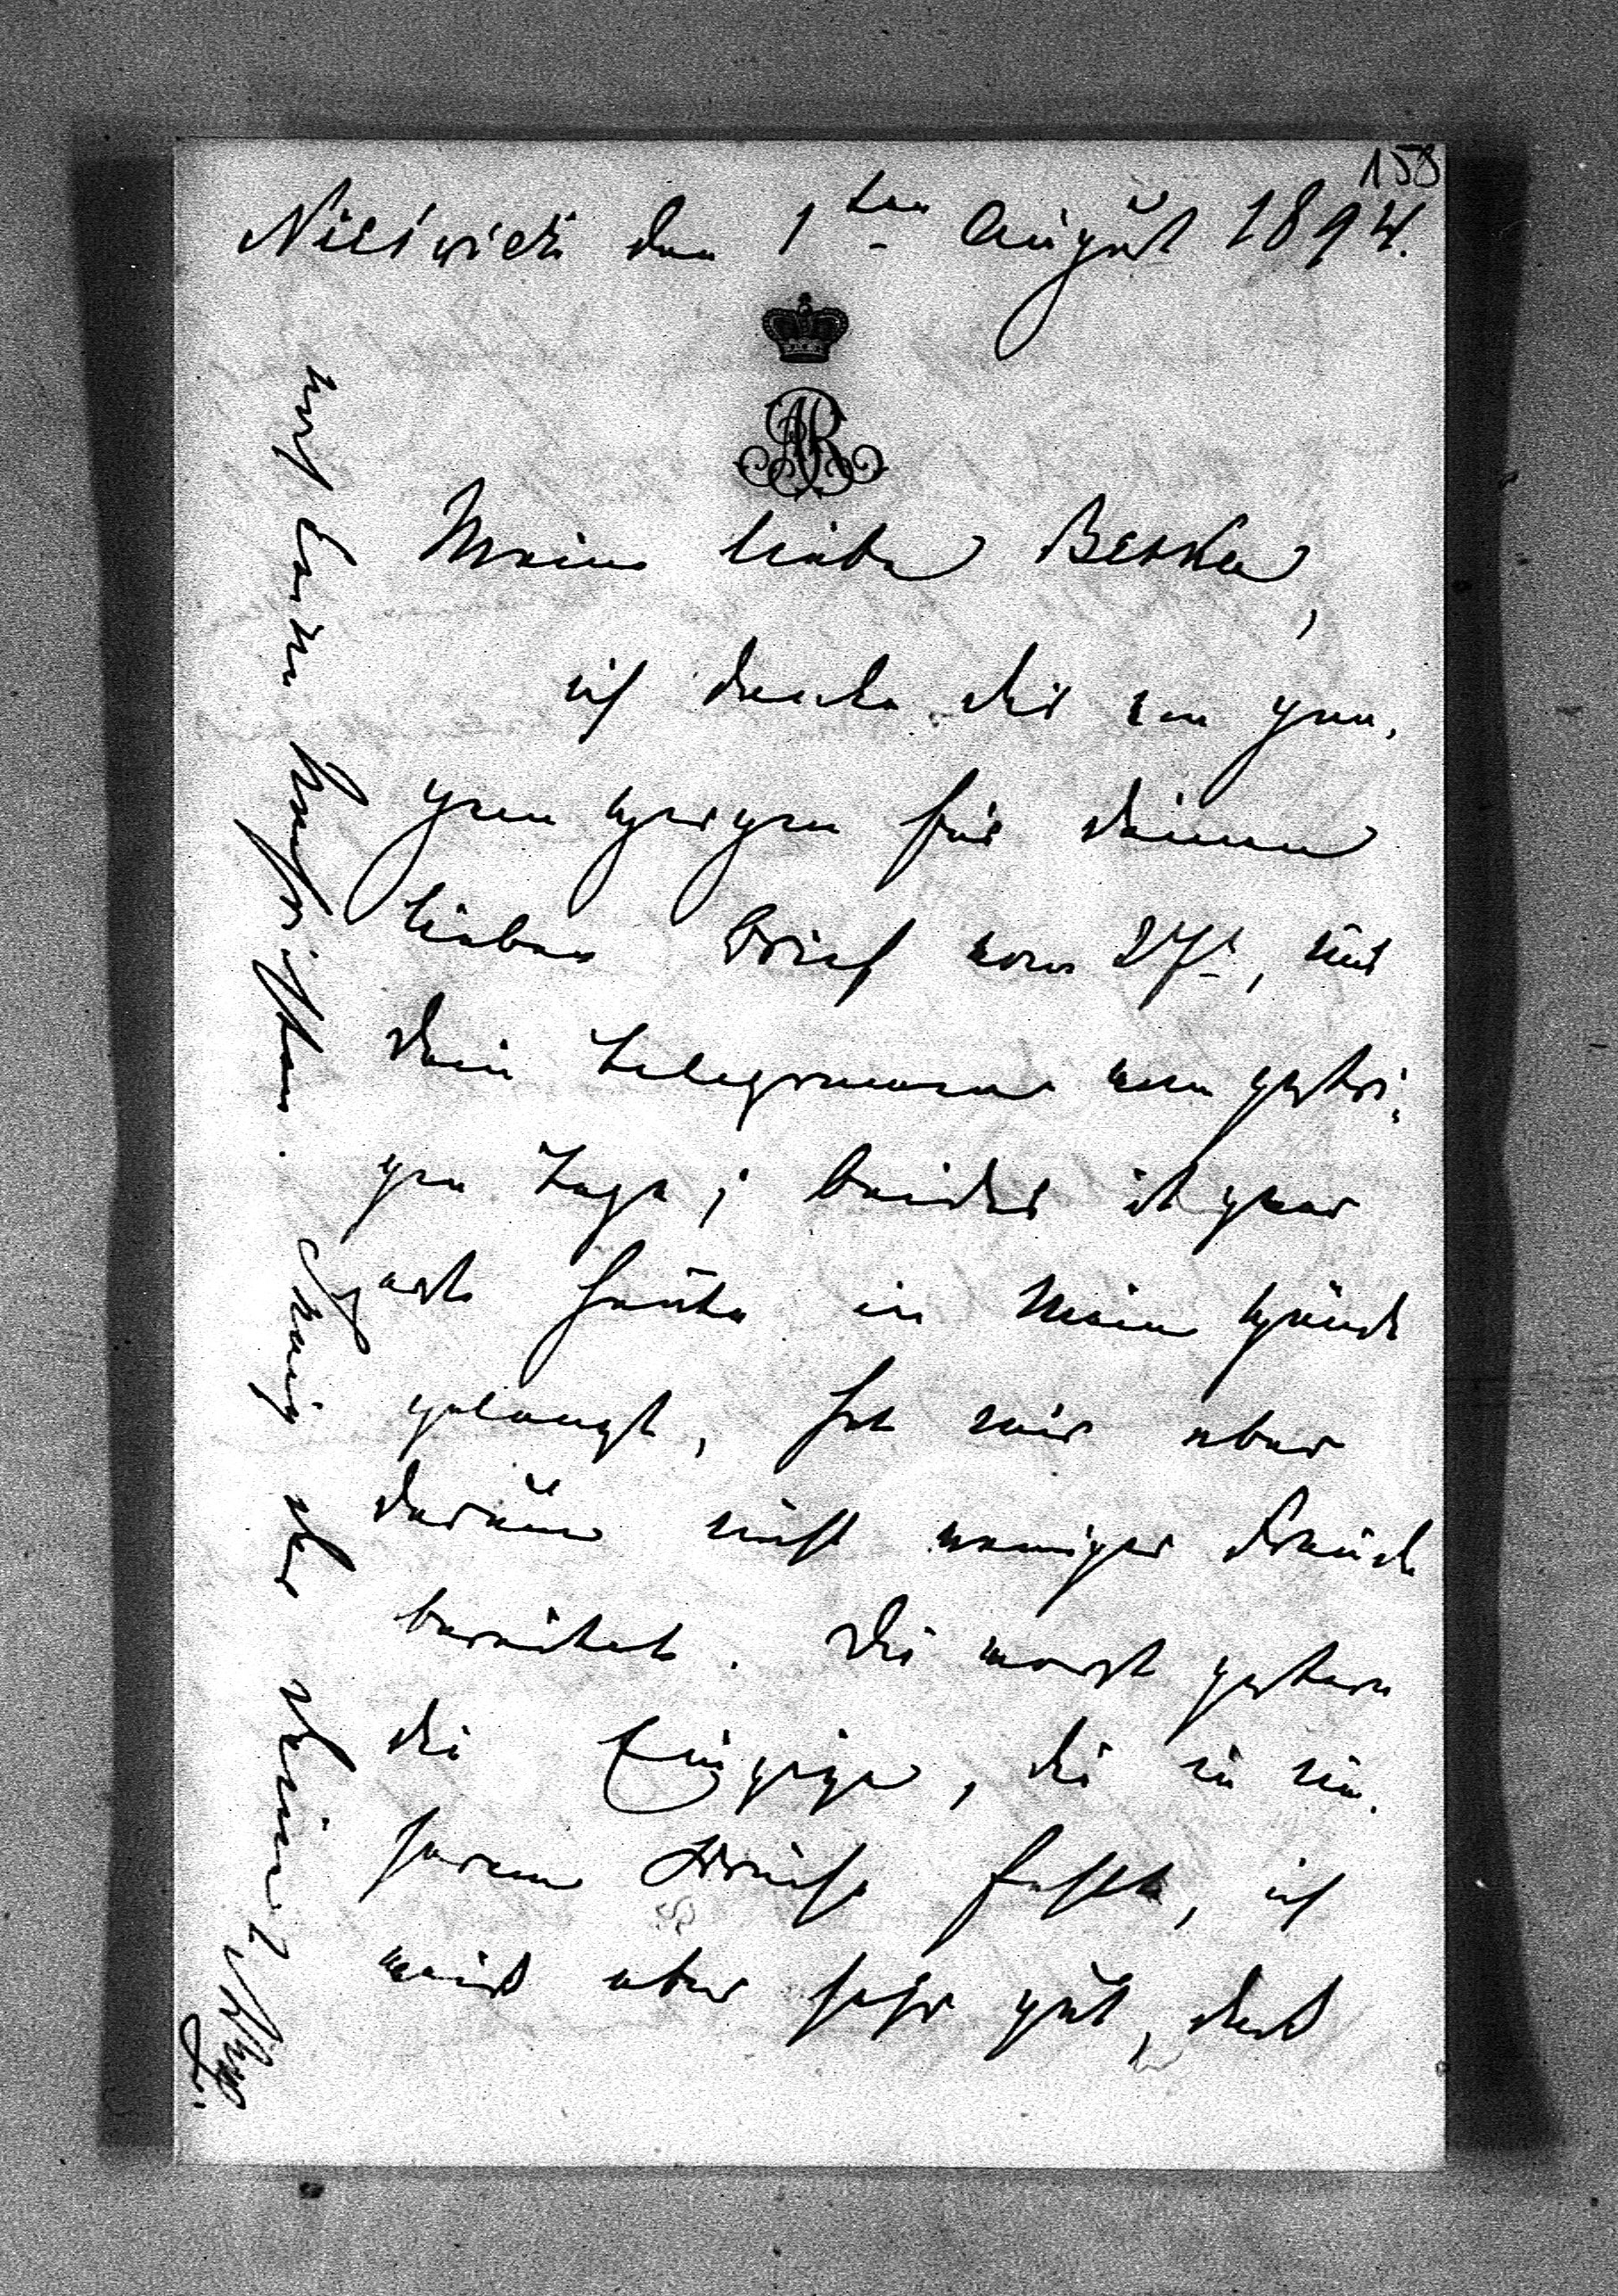 158
Nieśwież den 1ten August 1894.
AR
Meine liebe Betka,
ich danke dir von gan-
zem Herzen für deinen
lieben Brief vom 27t, und
dein Telegramm vom gestri-
gen Tage; beides ist zwar
erst heute in meine Hände
gelangt, hat mir aber
darum nicht weniger Freude
bereitet. Du warst gestern
die Einzige, die in un-
serem Kreise fehlte, ich
weiß aber sehr gut, daß